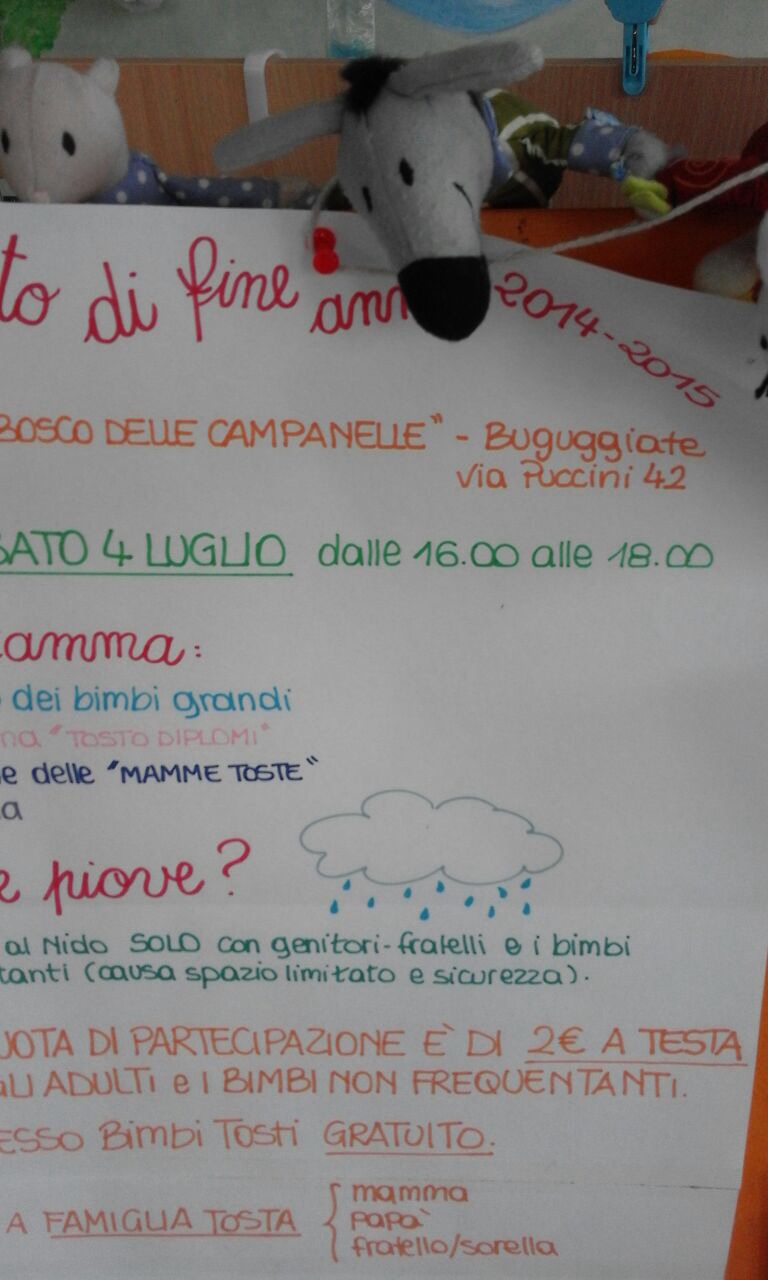 to di fine ann 2014-2015
BOSCO DELLE CAMPANELLE" - Buguggiate
via Puccini 42
SATO 4 LUGLIO dalle 16.00 alle 18.00
amma:
dei bimbi grandi
na "TOSTO DIPLOMI"
e delle "MAMME TOSTE"
a
e piove?
al Nido SOLO con genitori-fratelli e i bimbi
tanti (causa spazio limitato e sicurezza).
UOTA DI PARTECIPAZIONE È DI 2€ A TESTA
GLI ADULTI e I BIMBI NON FREQUENTANTI.
ESSO Bimbi Tosti GRATUITO.
A FAMIGLIA TOSTA { mamma
papà
fratello/sorella